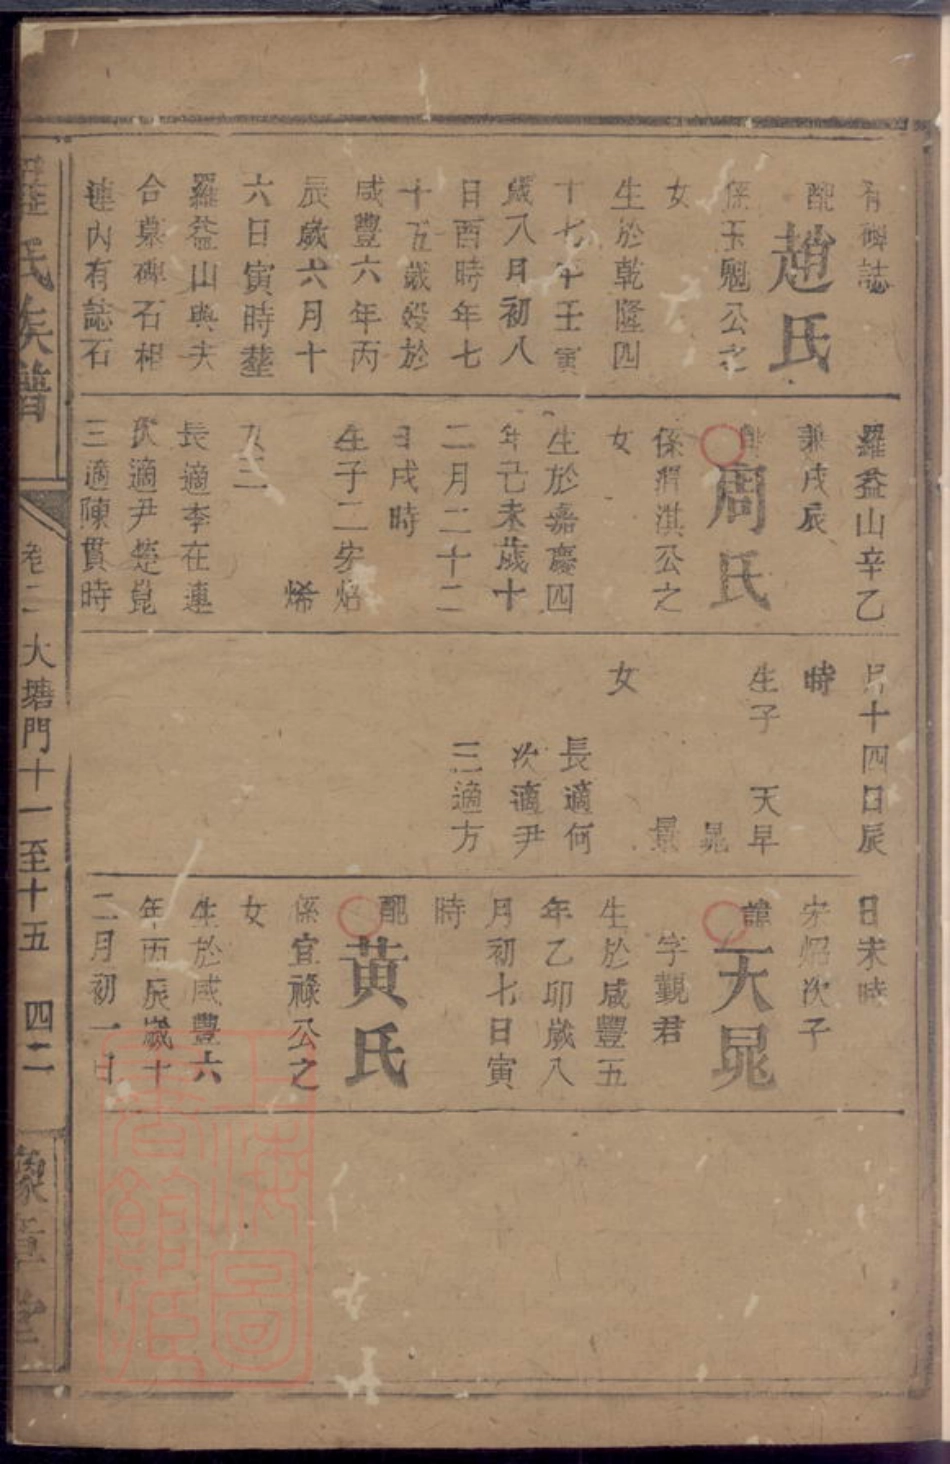 有碑誌
配趙氏
係玉魁公之
女
生於乾隆四
十七年壬寅
歲八月初八
日酉時年七
十五歲歿於
咸豐六年丙
辰歲六月十
六日寅時塟
羅益山與夫
合墓碑石相
連內有誌石
羅益山辛乙
兼戌辰
周氏
係渭淇公之
女
生於嘉慶四
年己未歲十
二月二十二
日戌時
生子二宏炤
烯
女三
長適李在連
次適尹楚崑
三適陳貫時
月十四日辰
時
生子 天早
晁
景
女
長適何
次適尹
三適方
日未時
宏炤次子
諱天晁
字觀君
生於咸豐五
年乙卯歲八
月初七日寅
時
配黃氏
係宜祿公之
女
生於咸豐六
年丙辰歲十
二月初一日
羅氏族譜
卷二 大塘門十一至十五 四二
豫章堂
上海圖
書館藏